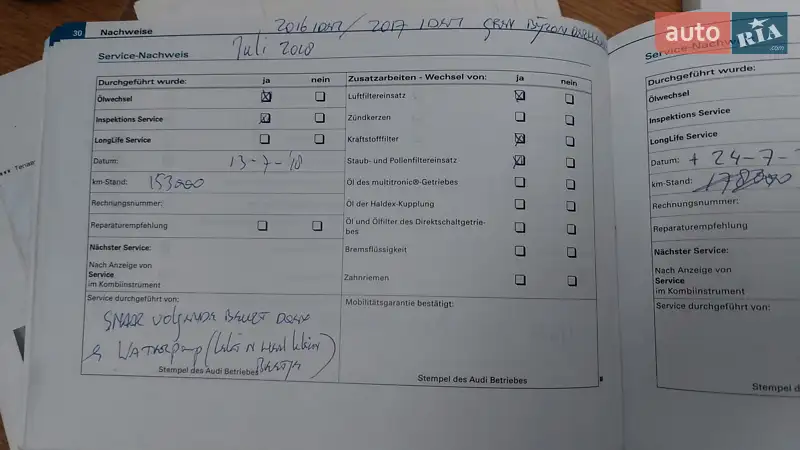 30 Nachweise
2016 / 2017
Juli 2018
Service-Nachweis
Durchgeführt wurde: ja nein
Ölwechsel
Inspektions Service
LongLife Service
Datum: 13-7-'18
km-Stand: 153000
Rechnungsnummer:
Reparaturempfehlung
Nächster Service:
Nach Anzeige von
Service
im Kombiinstrument
Service durchgeführt von:
SNAAR VOLGENDE BEURT DOEN
& WATERPomp
Stempel des Audi Betriebes
Zusatzarbeiten - Wechsel von: ja nein
Luftfiltereinsatz
Zündkerzen
Kraftstofffilter
Staub- und Pollenfiltereinsatz
Öl des multitronic®-Getriebes
Öl der Haldex-Kupplung
Öl und Ölfilter des Direktschaltgetrie-
bes
Bremsflüssigkeit
Zahnriemen
Mobilitätsgarantie bestätigt:
Stempel des Audi Betriebes
auto RIA .com
Durchgeführt wurde:
Ölwechsel
Inspektions Service
LongLife Service
Datum: + 24-7-
km-Stand: 178000
Rechnungsnummer:
Reparaturempfehlung
Nächster Service:
Nach Anzeige von
Service
im Kombiinstrument
Service durchgeführt von:
Stempel d